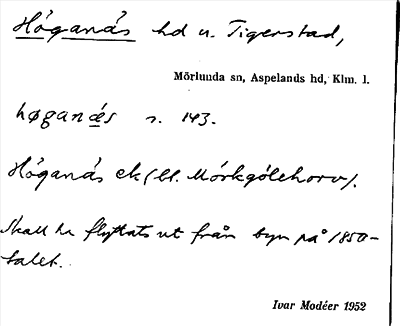 Höganäs hd u. Tigerstad,
Mörlunda sn, Aspelands hd, Klm. l.
høganæs s. 143.
Höganäs ek (bl. Mörkgölehorv).
Skall ha flyttats ut från byn på 1850-
talet.
Ivar Modéer 1952